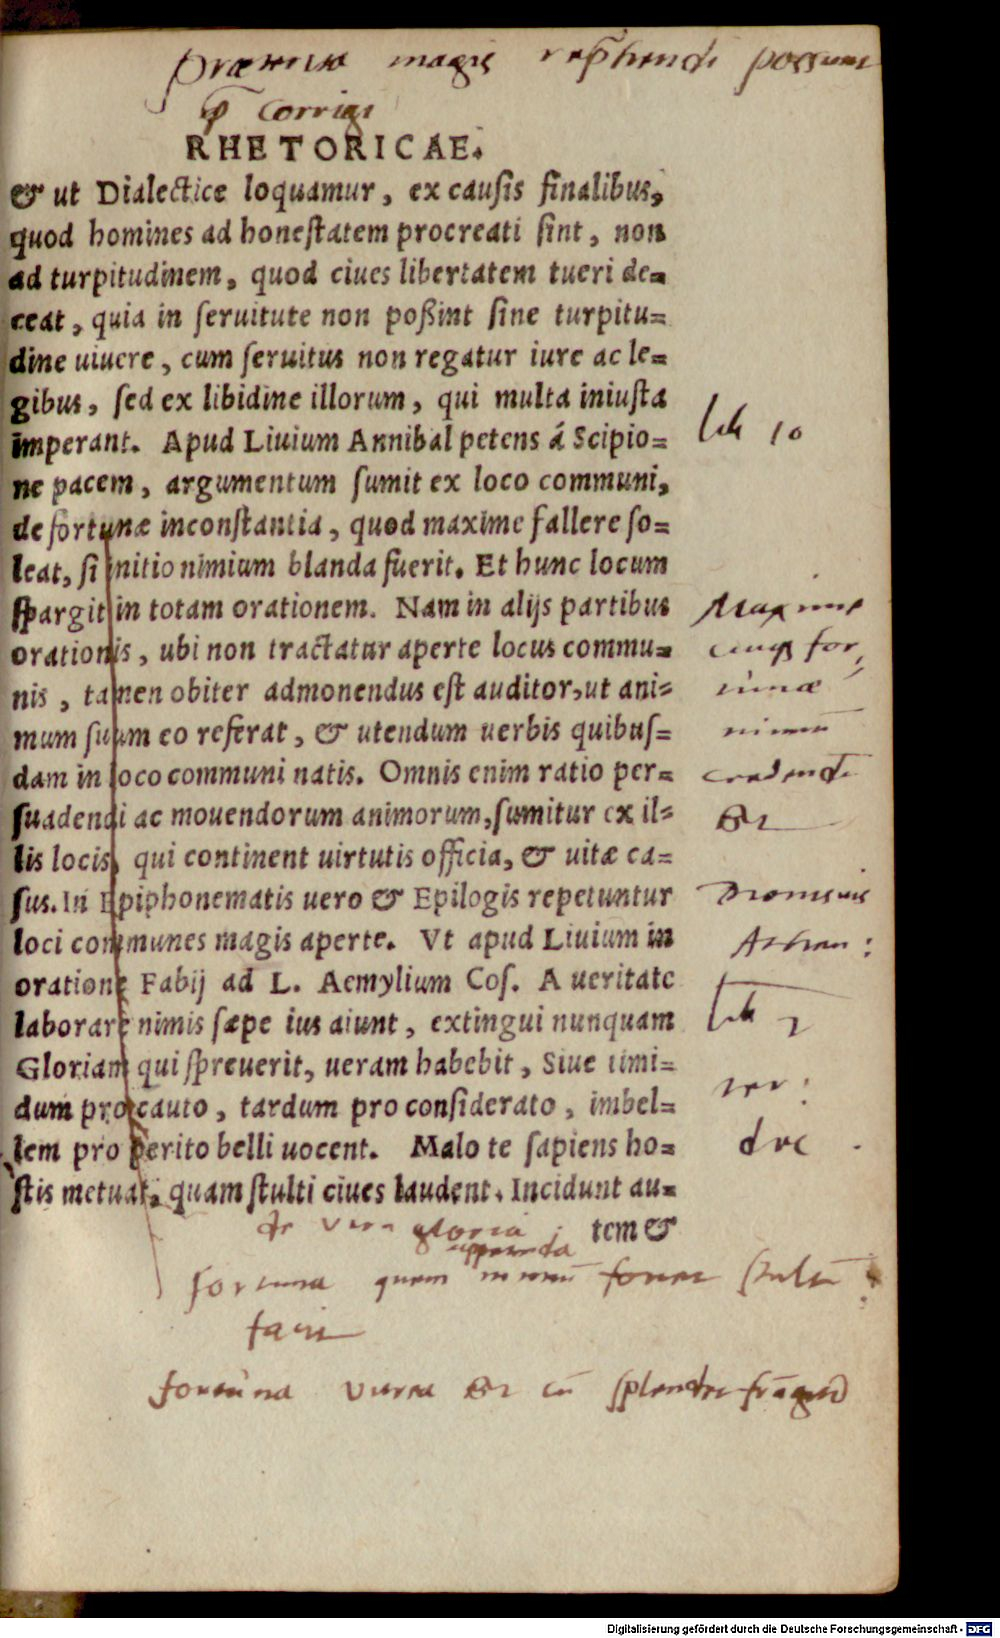 magis possunt
corrigi
RHETORICAE.
& ut Dialectice loquamur, ex causis finalibus,
quod homines ad honestatem procreati sint, non
ad turpitudinem, quod ciues libertatem tueri de=
ceat, quia in seruitute non poßint sine turpitu=
dine uiuere, cum seruitus non regatur iure ac le=
gibus, sed ex libidine illorum, qui multa iniusta
imperant. Apud Liuium Annibal petens á Scipio=
ne pacem, argumentum sumit ex loco communi,
de fortunæ inconstantia, quod maxime fallere so=
leat, si initio nimium blanda fuerit. Et hunc locum
spargit in totam orationem. Nam in alijs partibus
orationis, ubi non tractatur aperte locus commu=
nis, tamen obiter admonendus est auditor, ut ani=
mum suum eo referat, & utendum uerbis quibus=
dam in loco communi natis. Omnis enim ratio per=
suadendi ac mouendorum animorum, sumitur ex il=
lis locis, qui continent uirtutis officia, & uitæ ca=
sus. In Epiphonematis uero & Epilogis repetuntur
loci communes magis aperte. Vt apud Liuium in
oratione Fabij ad L. Aemylium Cos. A ueritate
laborare nimis sæpe ius aiunt, extingui nunquam
Gloriam qui spreuerit, ueram habebit, Siue timi=
dum pro cauto, tardum pro considerato, imbel=
lem pro perito belli uocent. Malo te sapiens ho=
stis metuat, quam stulti ciues laudent. Incidunt au=
tem &
lib 10
Maxime
cuiq for
tunæ
credendu
de vera gloria
fortuna quem nimiu fouet stultu
facit
fortuna vitrea est cu splendet frangit
Digitalisierung gefördert durch die Deutsche Forschungsgemeinschaft - DFG